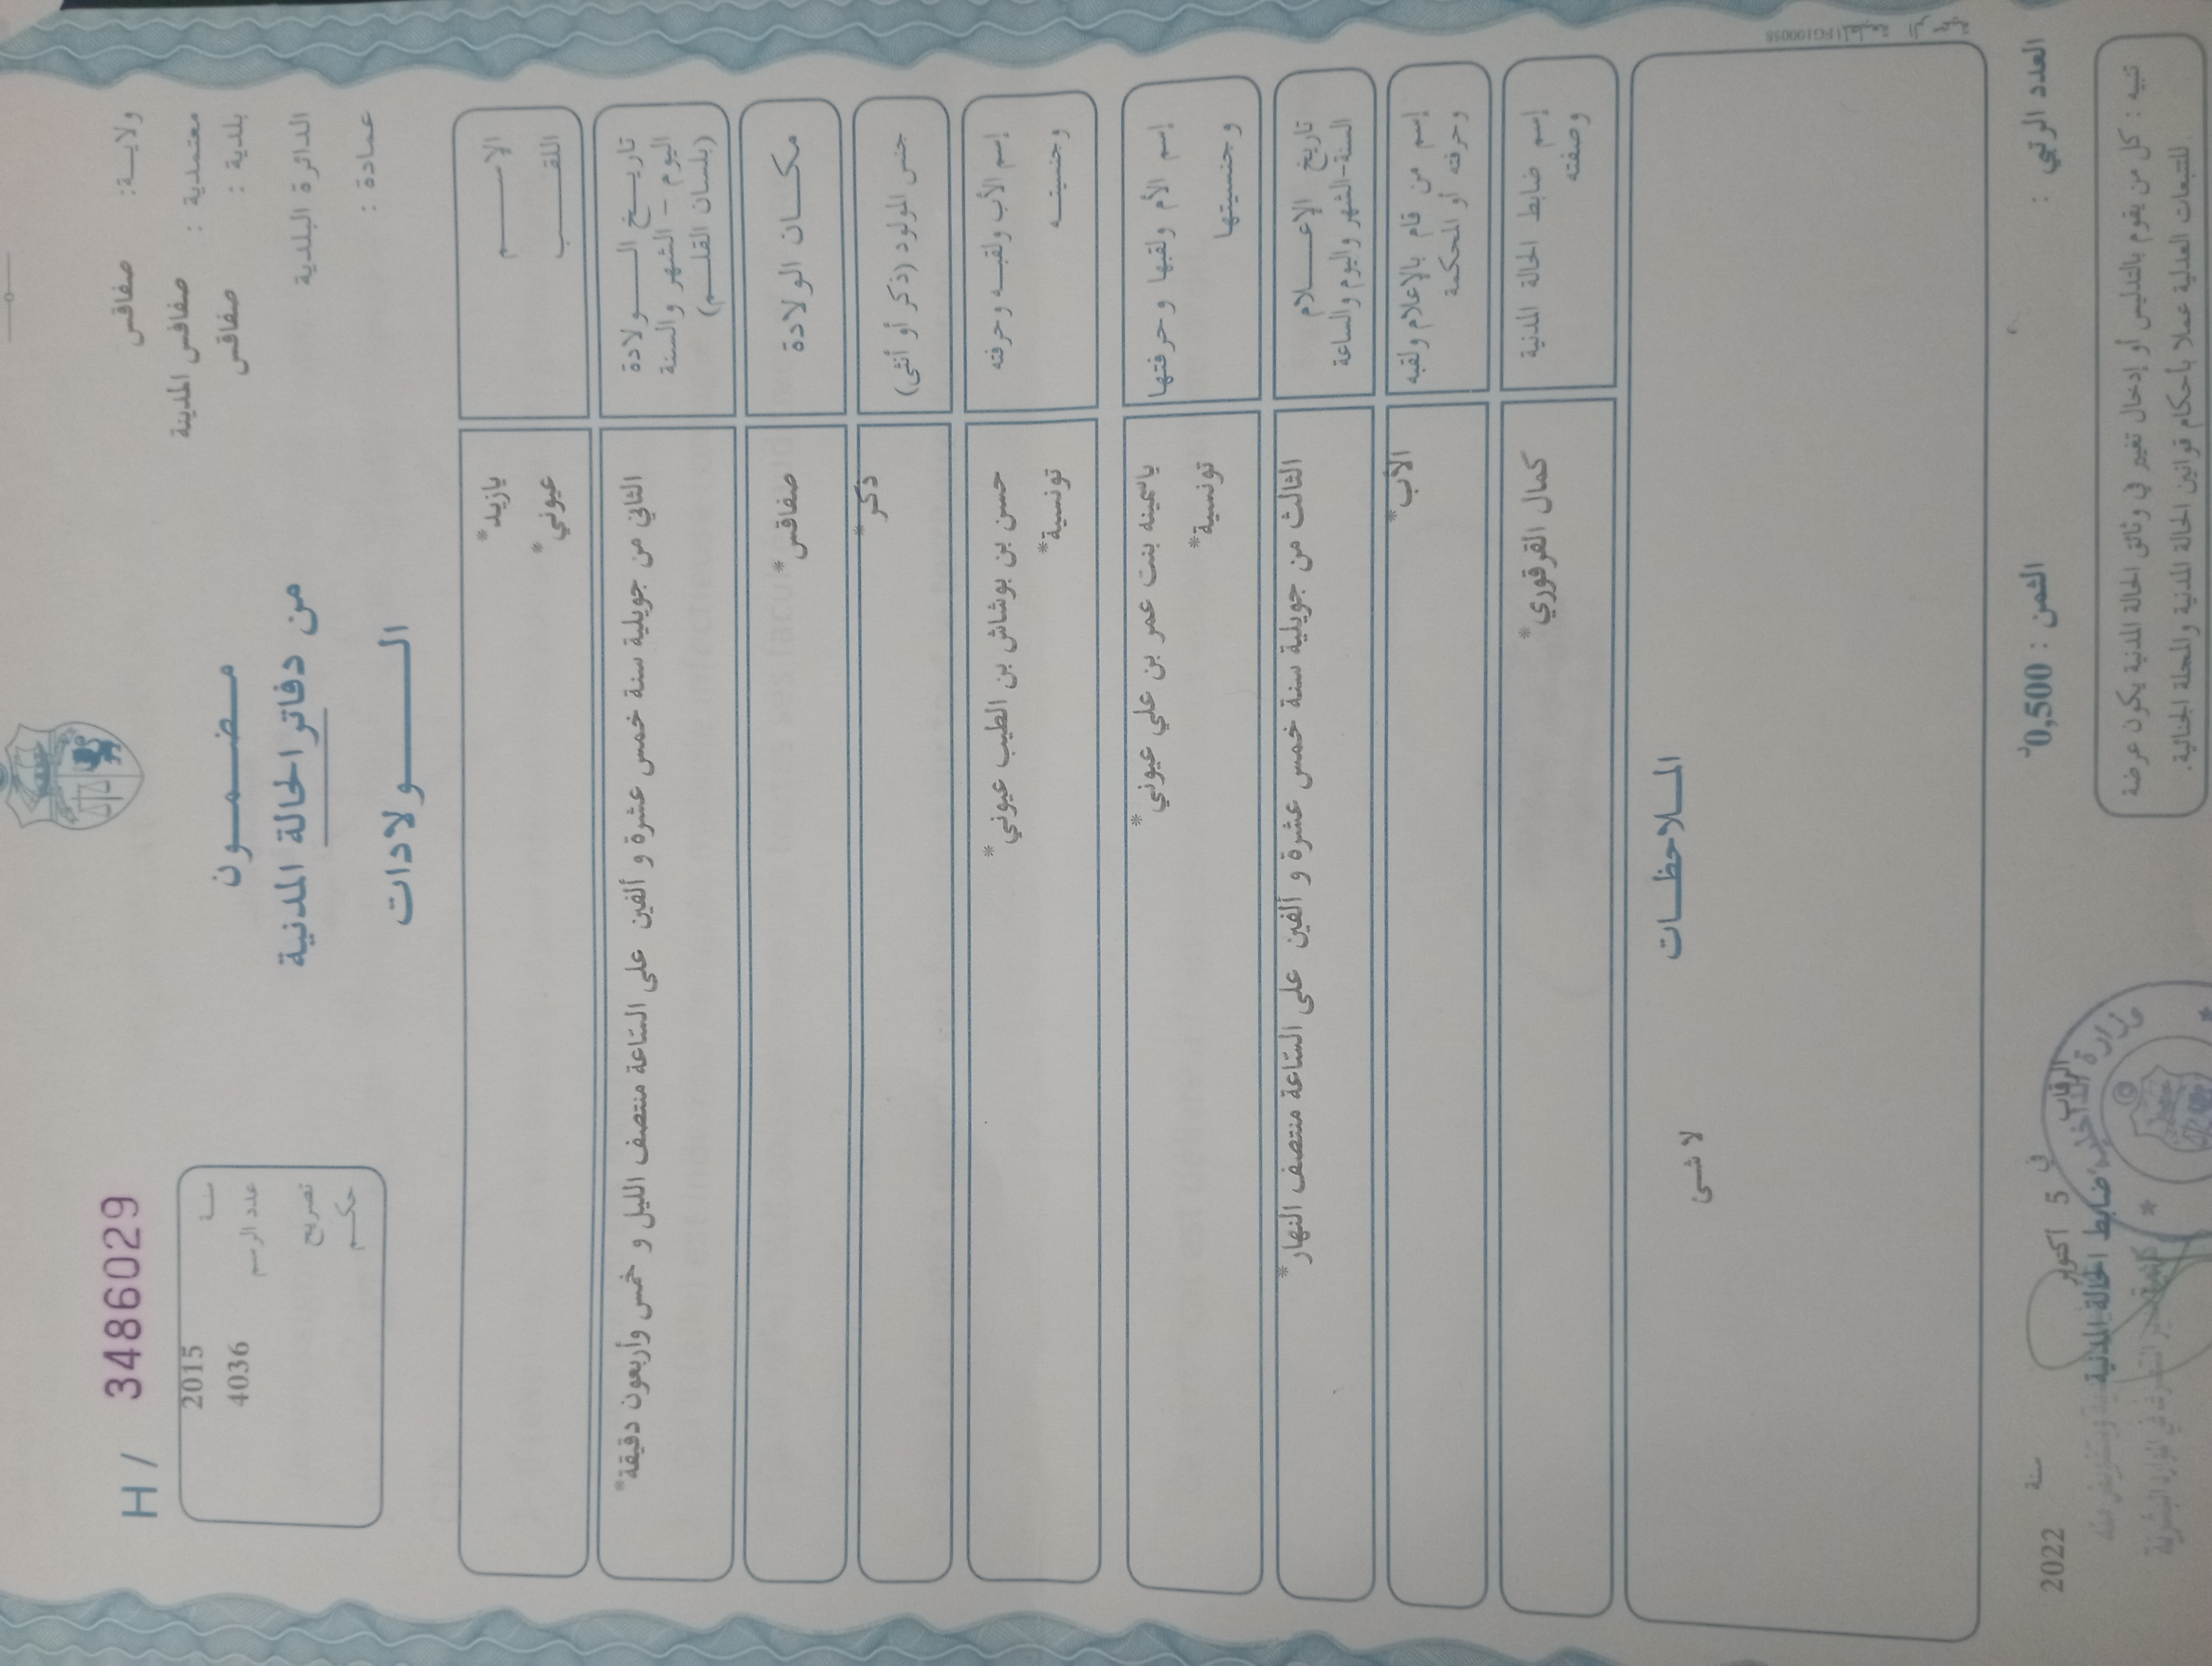 ولايـة: صفاقس
معتمدية : صفاقس المدينة
بلدية : صفاقس
الدائرة البلدية
عمادة :
مـضـمـون
من دفاتر الحالة المدنية
الـــولادات
H / 3486029
سنـة 2015
عدد الرسم 4036
تصريح
حكـم
الاســـم
يازيد*
اللقـــب
عيوني*
تاريـخ الـــولادة
اليوم – الشهر والسنة
(بلسان القلـم)
الثاني من جويلية سنة خمس عشرة و ألفين على الساعة منتصف الليل و خمس وأربعون دقيقة*
مكـان الولادة
صفاقس*
جنس المولود (ذكر أو أنثى)
ذكر*
إسم الأب ولقبـه وحرفته
حسن بن بوشاش بن الطيب عيوني*
وجنسيتـه
تونسية*
إسم الأم ولقبها وحرفتها
ياسمينه بنت عمر بن علي عيوني*
وجنسيتها
تونسية*
تاريخ الإعـلام
السنة-الشهر واليوم والساعة
الثالث من جويلية سنة خمس عشرة و ألفين على الساعة منتصف النهار*
إسم من قام بالإعلام ولقبه
وحرفته أو المحكمة
الأب*
إسم ضابط الحالة المدنية
وصفته
كمال القرقوري*
المـلاحظـات
لا شئ
العدد الرتبي :
الثمن : 0,500د
الرقاب في 5 أكتوبر سنة 2022
ضابط الحالة المدنية
وزارة الداخلية
تنبيه : كل من يقوم بالتدليس أو إدخال تغيير في وثائق الحالة المدنية يكون عرضة
للتتبعات العدلية عملا بأحكام قوانين الحالة المدنية والمجلة الجنائية.